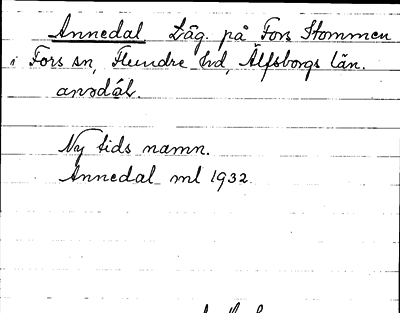 Annedal Läg. på Fors Stommen
i Fors sn, Flundre hd, Älfsborgs län.
anədάl.
Ny tids namn.
Annedal ml 1932